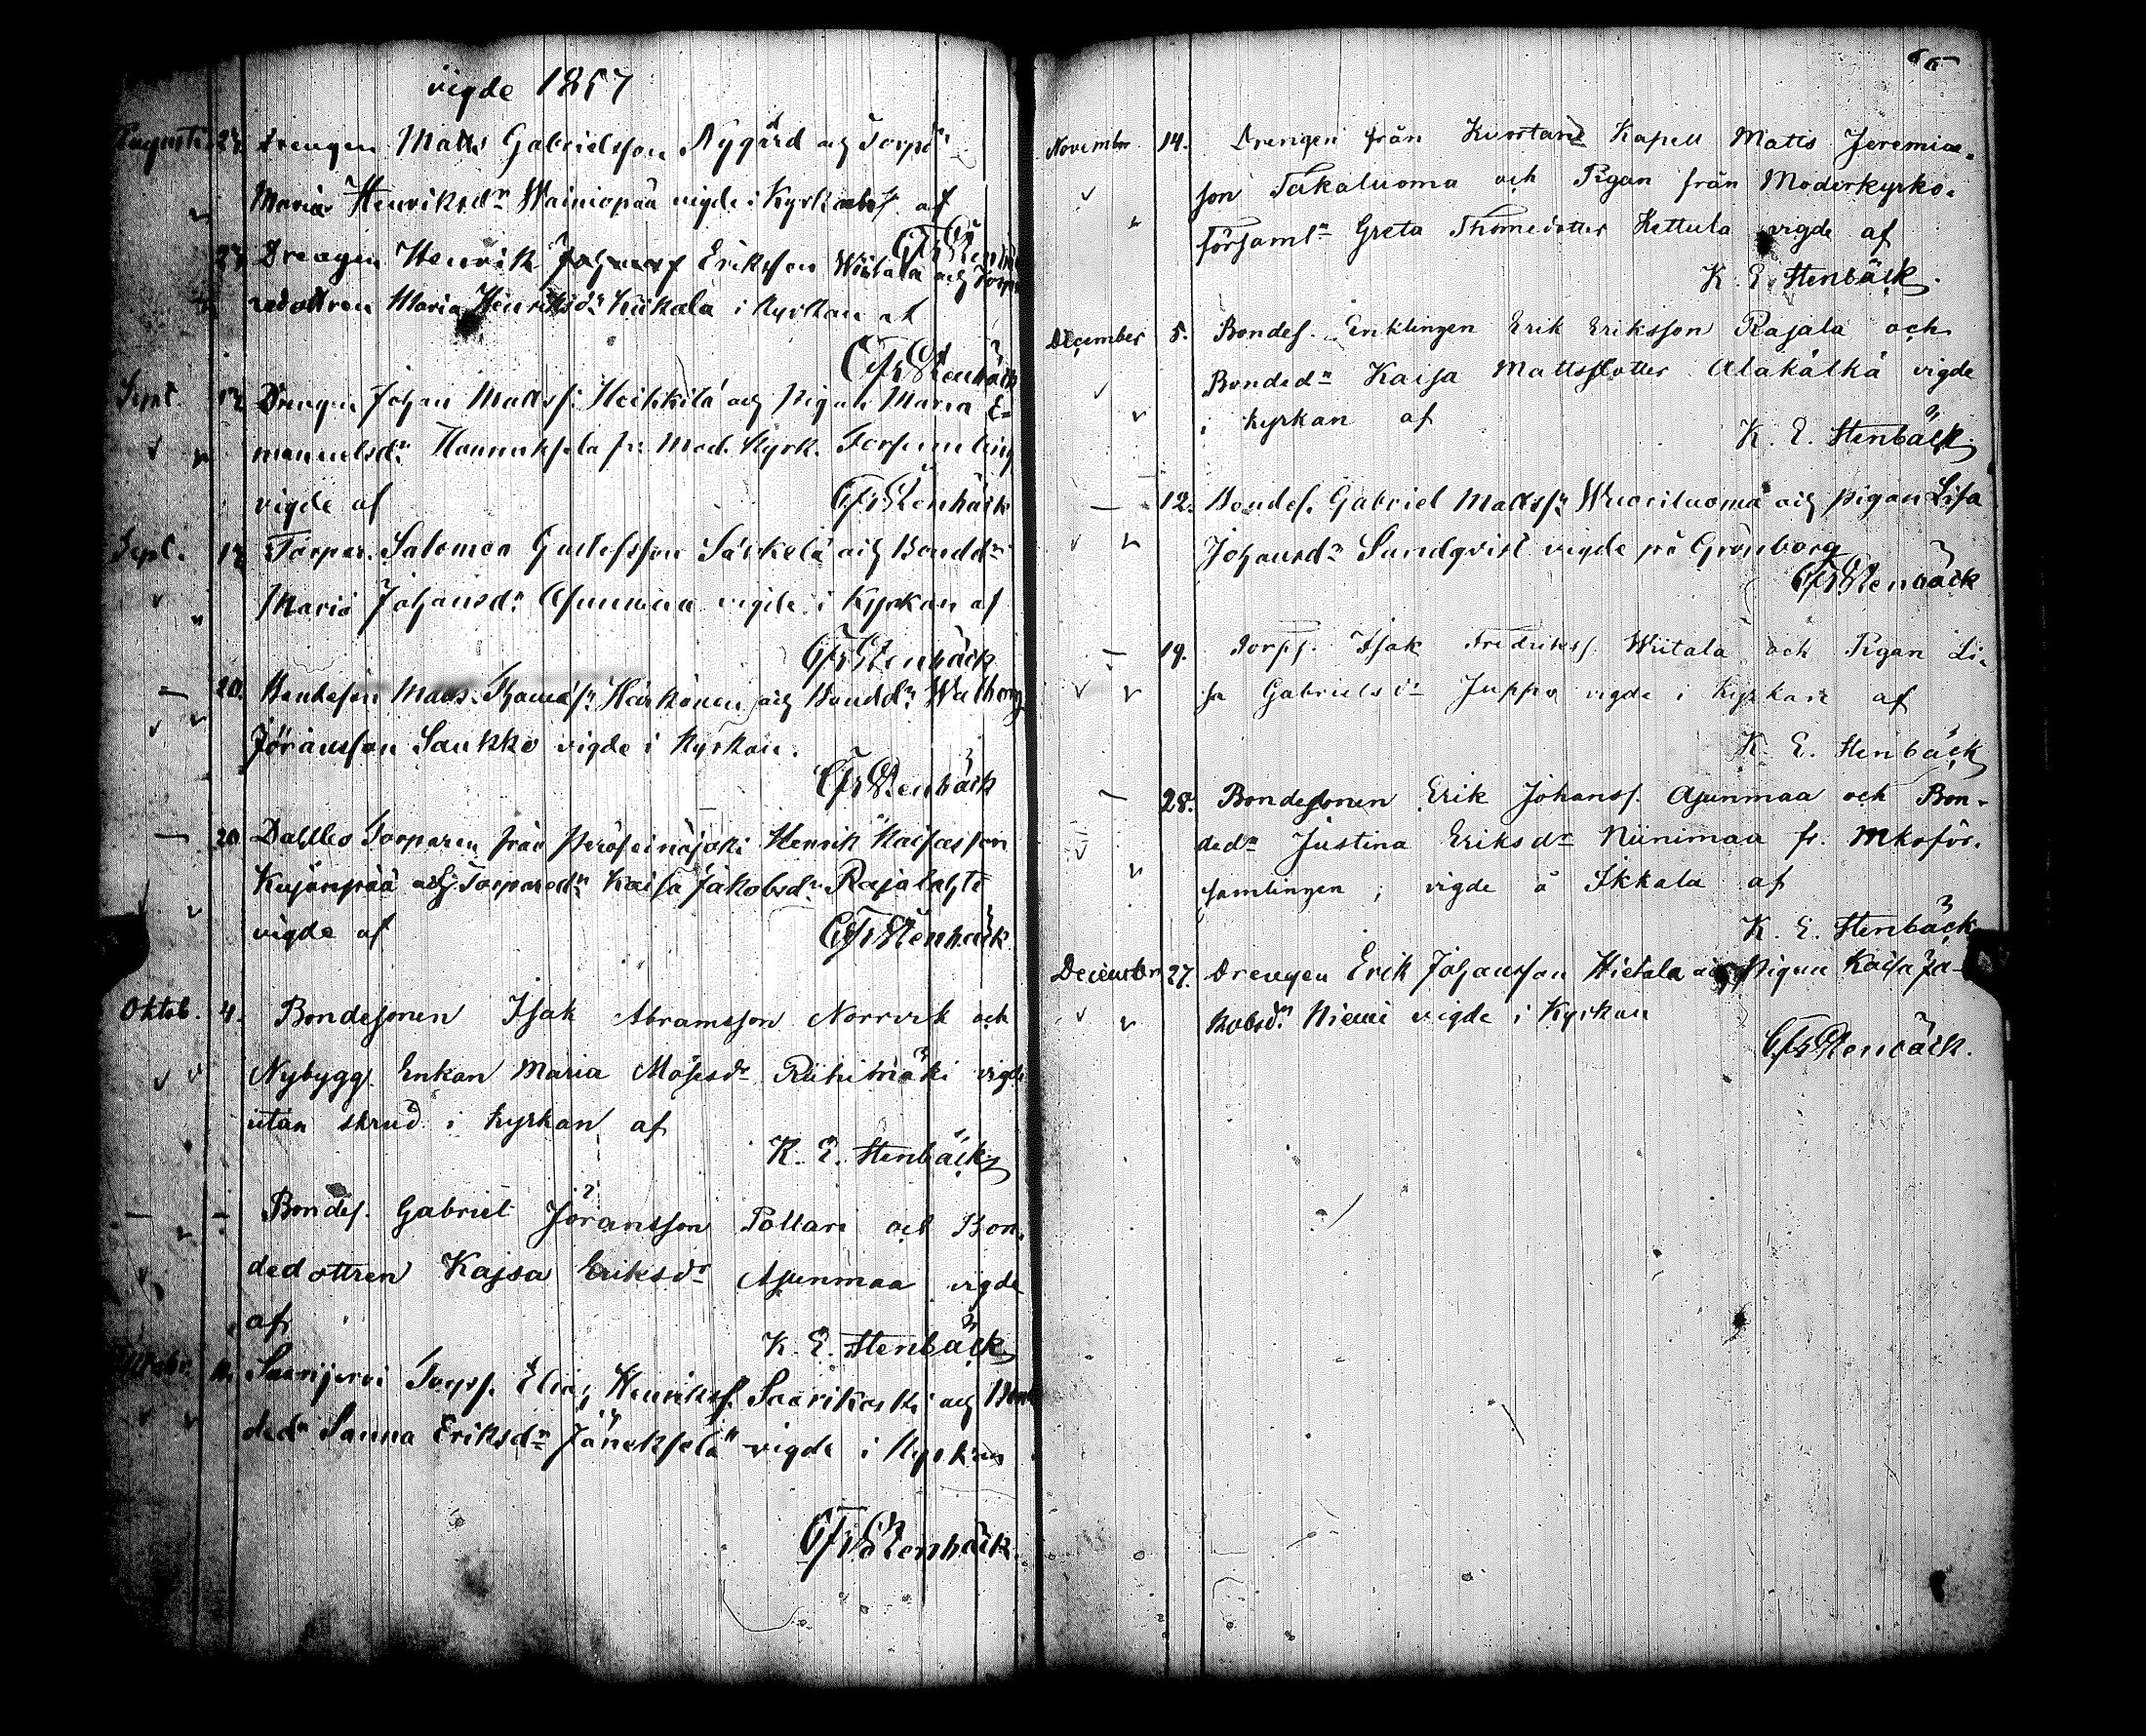 vigde 1857
Augusti 23. Drengen Matts Gabrielsson Nygård och Torp
Maria Henriksdr Wainiopää vigde i Kyrkan af
Drengen Henrik Eriksson Wiitala och Torpa
redottren Maria Henriksdr Liikala i Kyrkan af
Stenbäck
Sept. Drengen Johan Mattss. Heikkilä och Pigan Maria E-
manuelsdr Hannuksela fr. Mod. Kyrk. Forsamling
vigde af Stenbäck
Sept. Torpar. Salomon Gustafsson Särkelä och Bondedr
Maria Johansdr Asunmaa vigde i Kyrkan af
Stenbäck
— 20. Bondeson Matts Thomass. Härkönen och Bondedr Walborg
Jöransson Saukko vigde i Kyrkan.
Stenbäck
— 20 Torparen från Peräseinäjoki Henrik
Kujanpää och Torparedr Kaisa Jakobsdr Rajalahti
vigde af Stenbäck
Oktob. 4. Bondesonen Isak Abramsson Norrvik och
Nybygg. Enkan Maria Mosesdr Riihimäki vigde
utan skrud i kyrkan af
K. E. Stenbäck
— — Bondes. Gabriel Jöransson Pollari och Bon-
dedottren Kajsa Eriksdr Asunmaa vigde
af
K. E. Stenbäck
Saarijervi Torps. Elias Henrikss. Saarikoski och Bon
dedr Sanna Eriksdr vigde i Kyrkan
Stenbäck
66
November 14. Drengen från Kuortane Kapell Matts Jeremias-
son Takaluoma och Pigan från Moderkyrko-
församln Greta Thomedotter Kettula vigde af
K. E. Stenbäck.
December 5. Bondes. Enklingen Erik Eriksson Rajala och
Bondedr Kaisa Mattsdotter Alakätkä vigde
i kyrkan af
K. E. Stenbäck
— 12. Bondes. Gabriel Mattss. Wuoriluoma och pigan Lisa
Johansdr Sundqvist vigde på Grönborg
Stenbäck
— 19. Torps. Isak Fredrikss. Wiitala och Pigan Li-
sa Gabrielsdr Juppo vigde i Kyrkan af
K. E. Stenbäck
— 28. Bondesonen Erik Johanss. Asunmaa och Bon-
dedr Justina Eriksdr Niinimaa fr. Mkoför-
samlingen; vigde å Ikkala af
K. E. Stenbäck
December 27. Drengen Erik Johansson Hietala och Pigan Kaisa Ja-
kobsdr Niemi vigde i Kyrkan
Stenbäck.